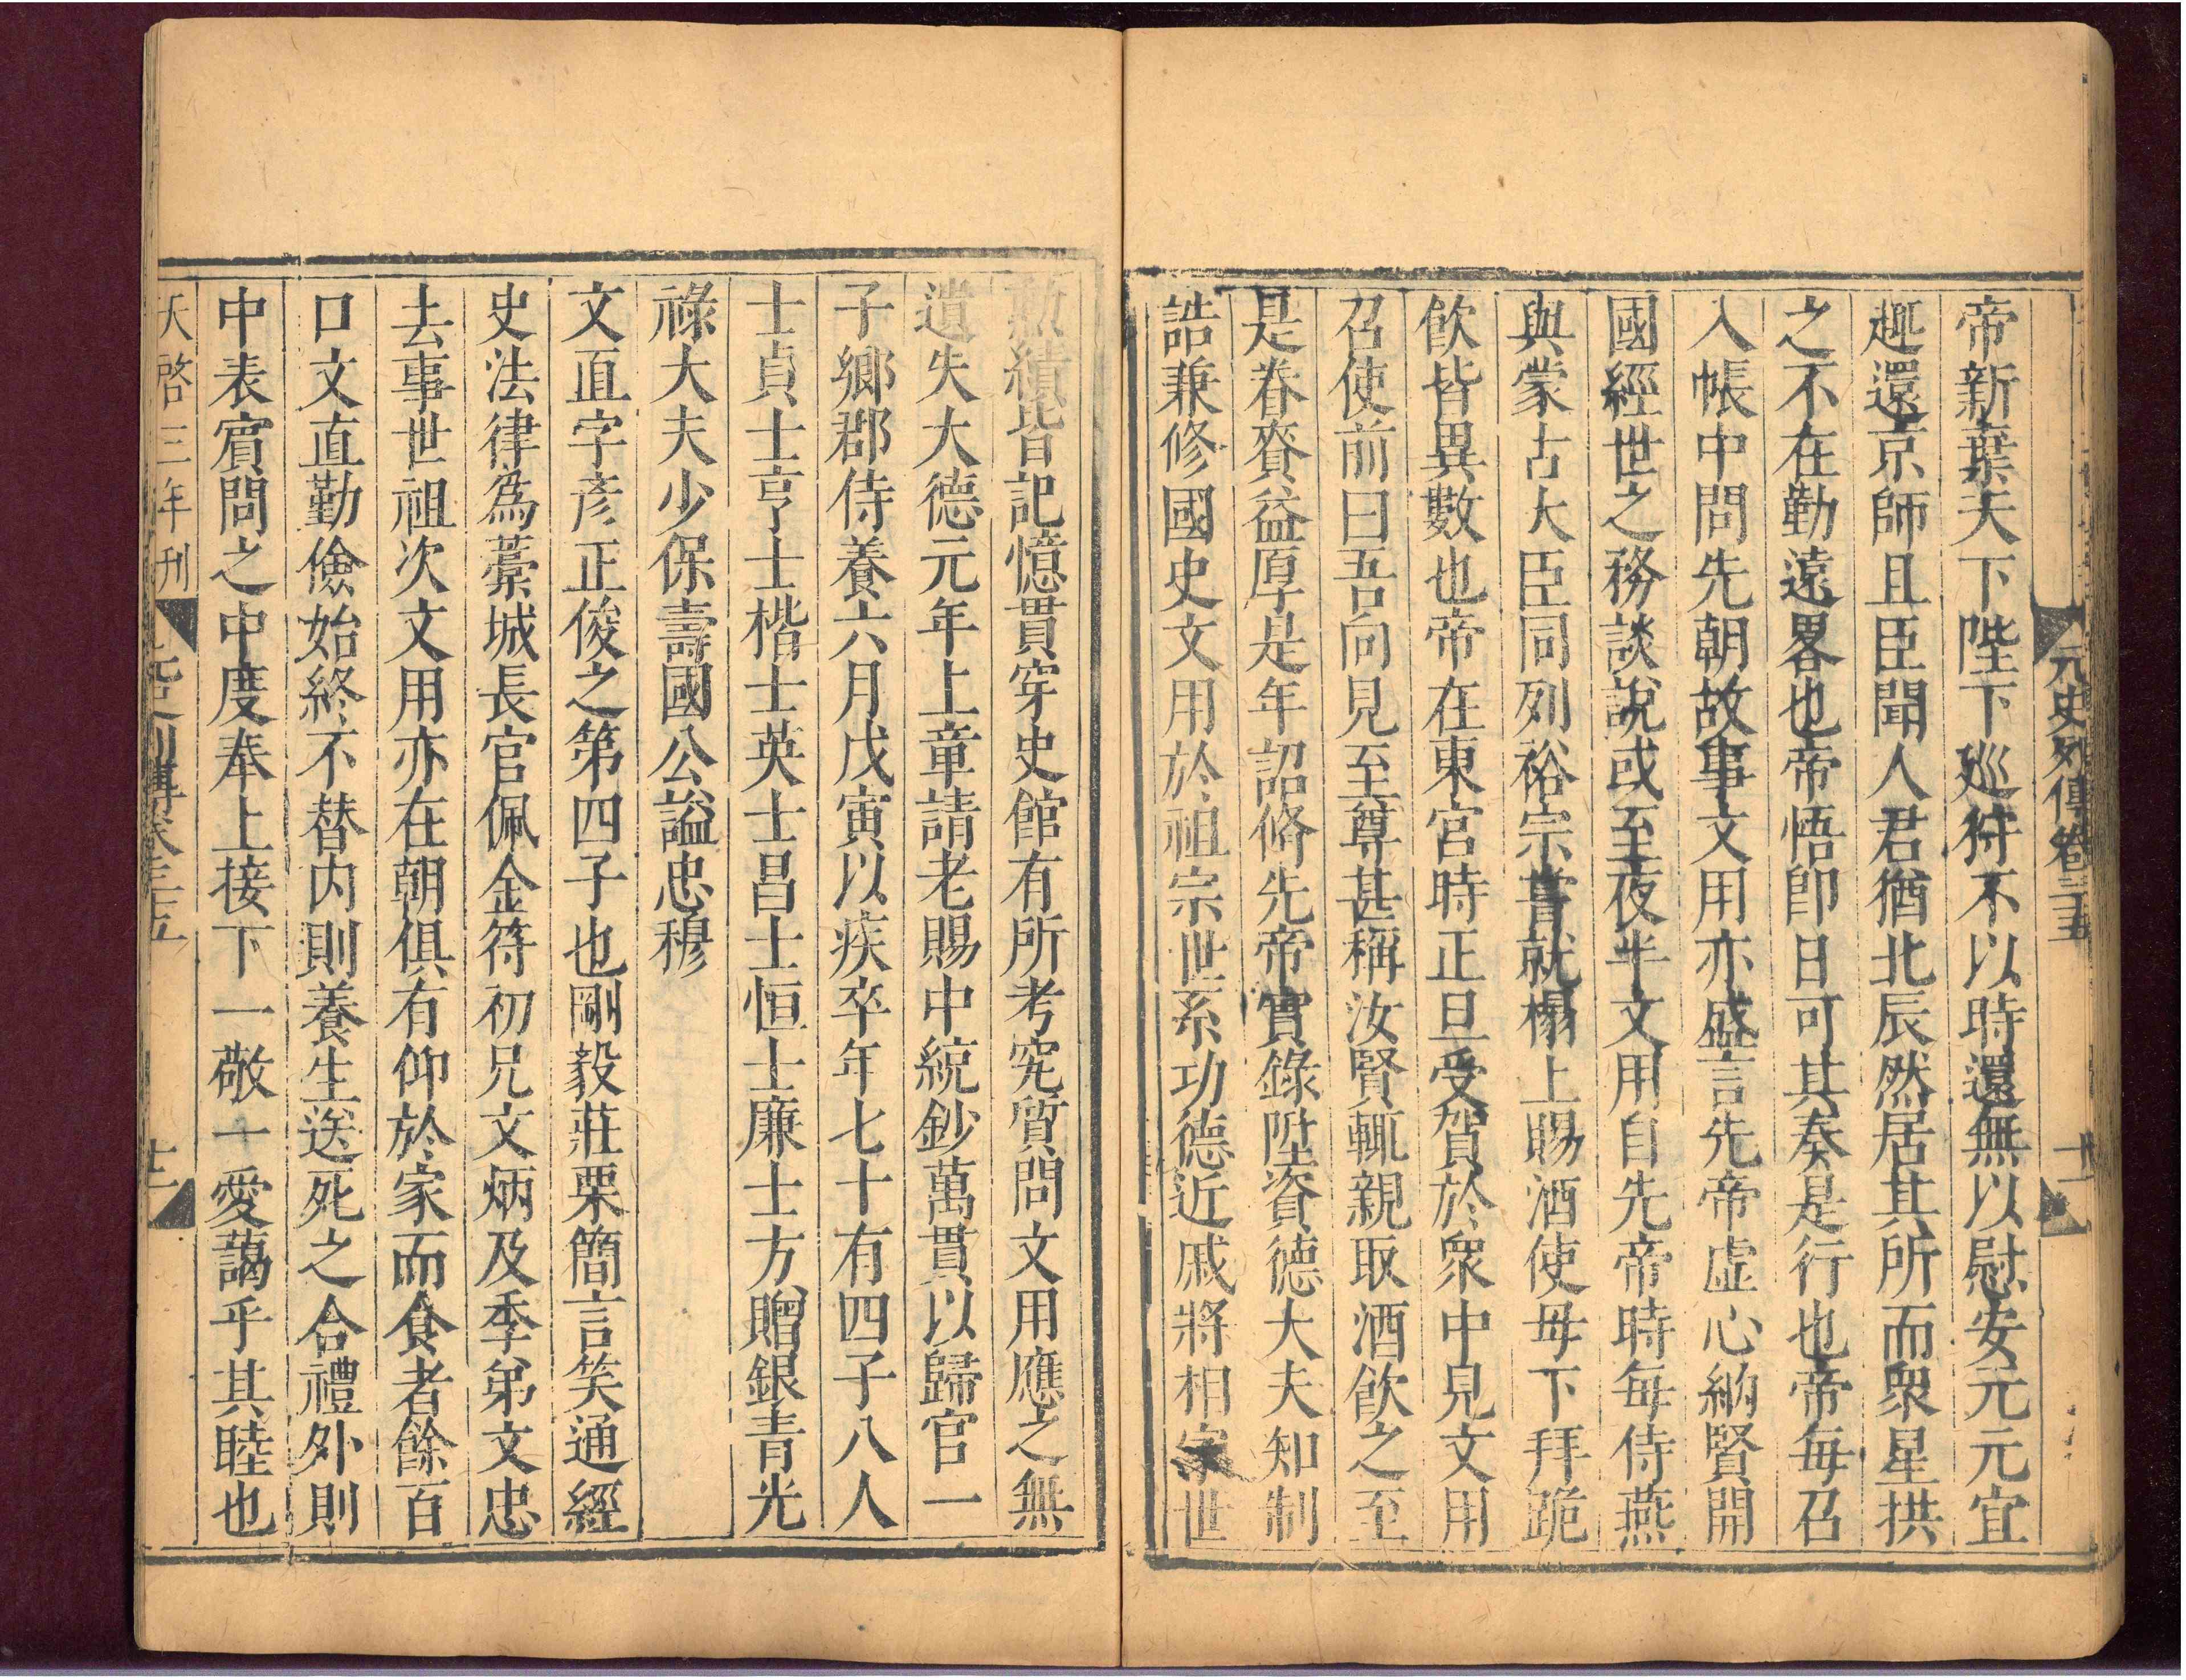 元史列傳卷三十五
十一
帝新棄天下陛下廵狩不以時還無以慰安元元宜
趣還京師且臣聞人君猶北辰然居其所而衆星拱
之不在勤遠畧也帝悟即日可其奏是行也帝每召
入帳中問先朝故事文用亦盛言先帝虚心納賢開
國經世之務談說或至夜半文用自先帝時每侍燕
與蒙古大臣同列裕宗嘗就榻上賜酒使毋下拜跪
飲皆異數也帝在東宫時正旦受賀於衆中見文用
召使前曰吾向見至尊甚稱汝賢輒親取酒飲之至
是眷賚益厚是年詔脩先帝實錄陞資德大夫知制
誥兼修國史文用於祖宗世系功德近戚將相家世
勲績皆記憶貫穿史館有所考究質問文用應之無
遺失大德元年上章請老賜中統鈔萬貫以歸官一
子鄉郡侍養六月戊寅以疾卒年七十有四子八人
士貞士亨士楷士英士昌士恒士廉士方贈銀青光
祿大夫少保壽國公謚忠穆
文直字彦正俊之第四子也剛毅莊栗簡言笑通經
史法律爲藁城長官佩金符初兄文炳及季弟文忠
去事世祖次文用亦在朝俱有仰於家而食者餘百
口文直勤儉始終不替内則養生送死之合禮外則
中表賔問之中度奉上接下一敬一愛藹乎其睦也
天啓三年刊